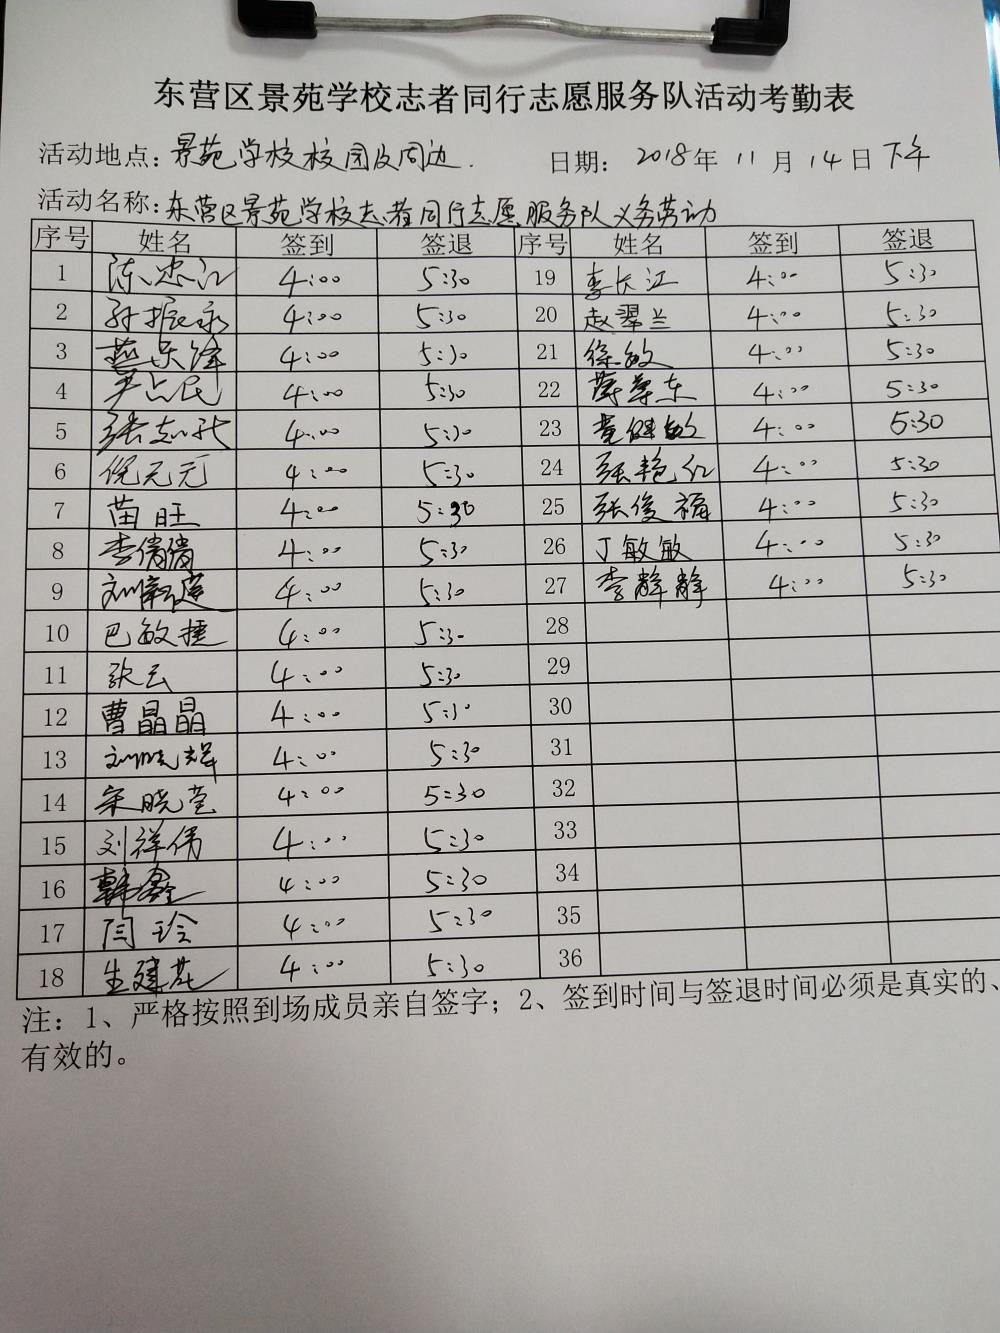 东营区景苑学校志者同行志愿服务队活动考勤表
活动地点：景苑学校校园及周边. 日期： 2018年 11 月 14 日下午
活动名称：东营区景苑学校志者同行志愿服务队义务劳动
序号 姓名 签到 签退 序号 姓名 签到 签退
1 陈忠江 4:00 5:30 19 李长江 4:00 5:30
2 孙振永 4:00 5:30 20 赵翠兰 4:00 5:30
3 4:00 5:30 21 徐敏 4:00 5:30
4 4:00 5:30 22 4:00 5:30
5 4:00 5:30 23 黄健敏 4:00 5:30
6 倪元元 4:00 5:30 24 张艳红 4:00 5:30
7 苗旺 4:00 5:30 25 张俊福 4:00 5:30
8 李倩倩 4:00 5:30 26 丁敏敏 4:00 5:30
9 4:00 5:30 27 李静静 4:00 5:30
10 巴敏捷 4:00 5:30 28
11 张云 4:00 5:30 29
12 曹晶晶 4:00 5:30 30
13 刘晓辉 4:00 5:30 31
14 宋晓莹 4:00 5:30 32
15 刘祥伟 4:00 5:30 33
16 韩鑫 4:00 5:30 34
17 闫玲 4:00 5:30 35
18 生建花 4:00 5:30 36
注：1、严格按照到场成员亲自签字；2、签到时间与签退时间必须是真实的、
有效的。